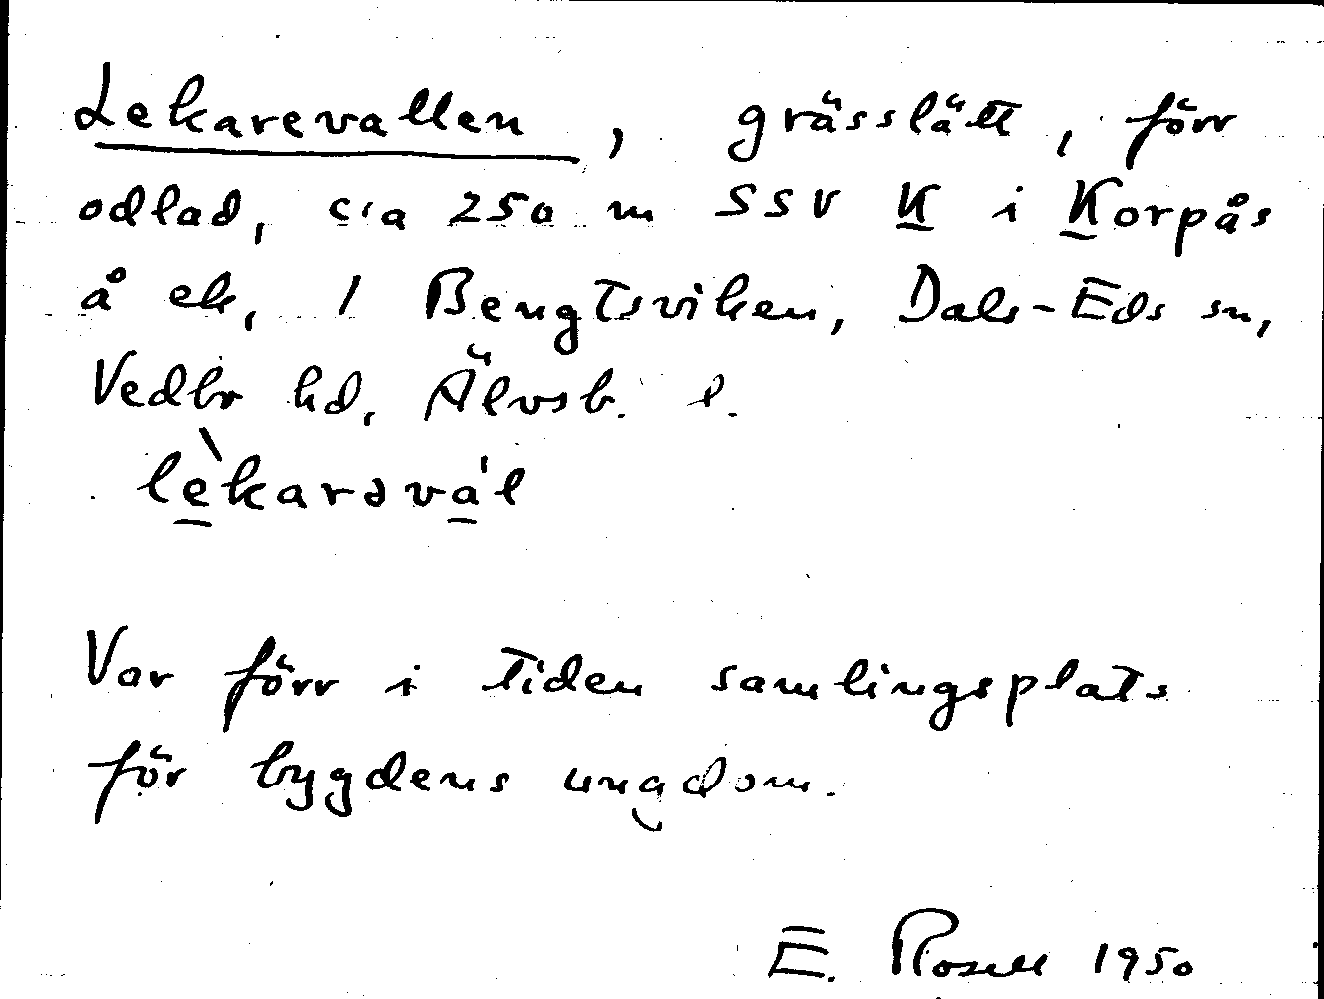 Lekarevallen, grässlätt, förr
odlad, c:a 250 m SSV K i Korpås
å ek, 1 Bengtsviken, Dals-Eds sn,
Vedbr hd, Älvsb. l.
lèkarəva'l
Var förr i tiden samlingsplats
för bygdens ungdom.
E. Rosell 1950